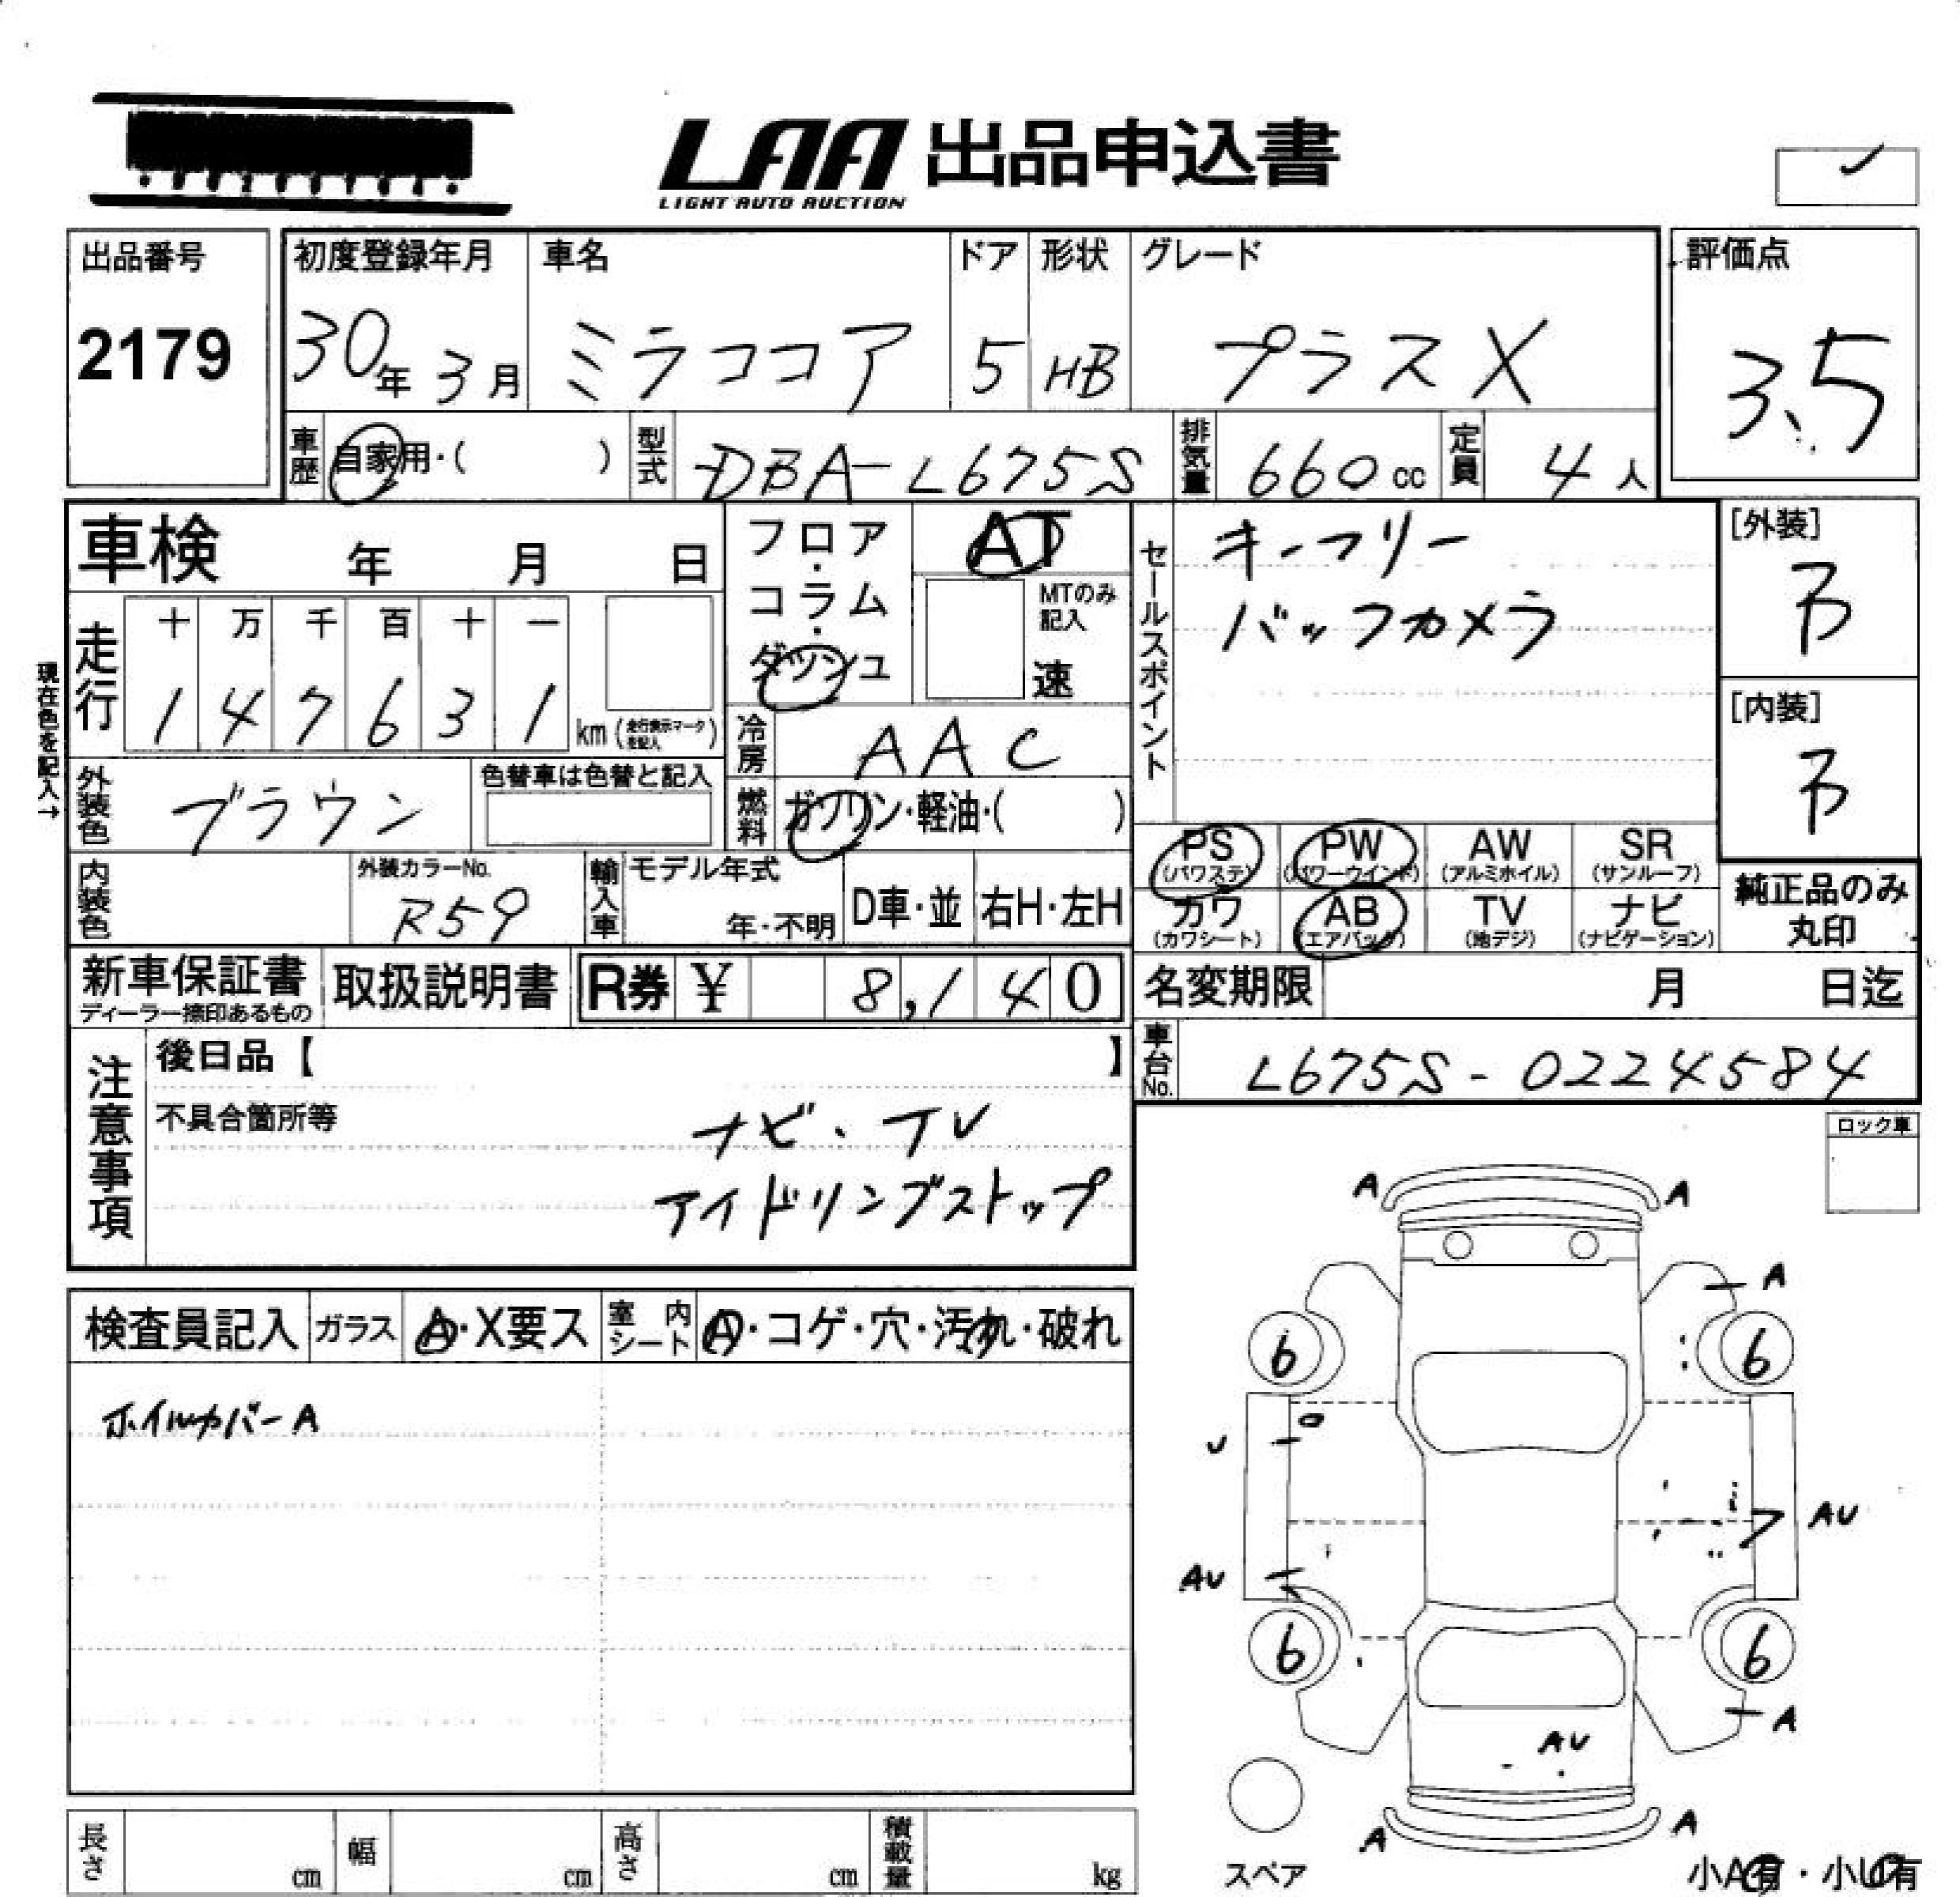 LAA 出品申込書
LIGHT AUTO AUCTION
出品番号
2179
初度登録年月
30年 3月
車名
ミラココア
ドア
5
形状
HB
グレード
プラスX
評価点
3.5
車歴 自家用・( )
型式 DBA-L675S
排気量 660 cc
定員 4 人
車検 年 月 日
走行
十 万 千 百 十 一
1 4 7 6 3 1 km (走行表示マーク を記入)
現在色を記入→
外装色 ブラウン
色替車は色替と記入
内装色
外装カラーNo.
R59
輸入車
モデル年式
年・不明
D車・並
右H・左H
フロア・コラム・ダッシュ
AT
MTのみ記入
速
冷房 AAC
燃料 ガソリン・軽油・( )
セールスポイント
キーフリー
バックカメラ
[外装]
B
[内装]
B
PS (パワステ)
PW (パワーウインド)
AW (アルミホイル)
SR (サンルーフ)
カワ (カワシート)
AB (エアバック)
TV (地デジ)
ナビ (ナビゲーション)
純正品のみ丸印
新車保証書
ディーラー捺印あるもの
取扱説明書
R券 ¥ 8,140
名変期限 月 日迄
車台No. L675S-0224584
注意事項
後日品【 】
不具合箇所等
ナビ・TV
アイドリングストップ
ロック車
検査員記入
ガラス A・X要ス
室内シート A・コゲ・穴・汚れ・破れ
ホイルカバーA
A A
A
6 6
U
AU
AU
6 6
A
AU
A A
スペア
小A有・小U有
長さ cm
幅 cm
高さ cm
積載量 kg